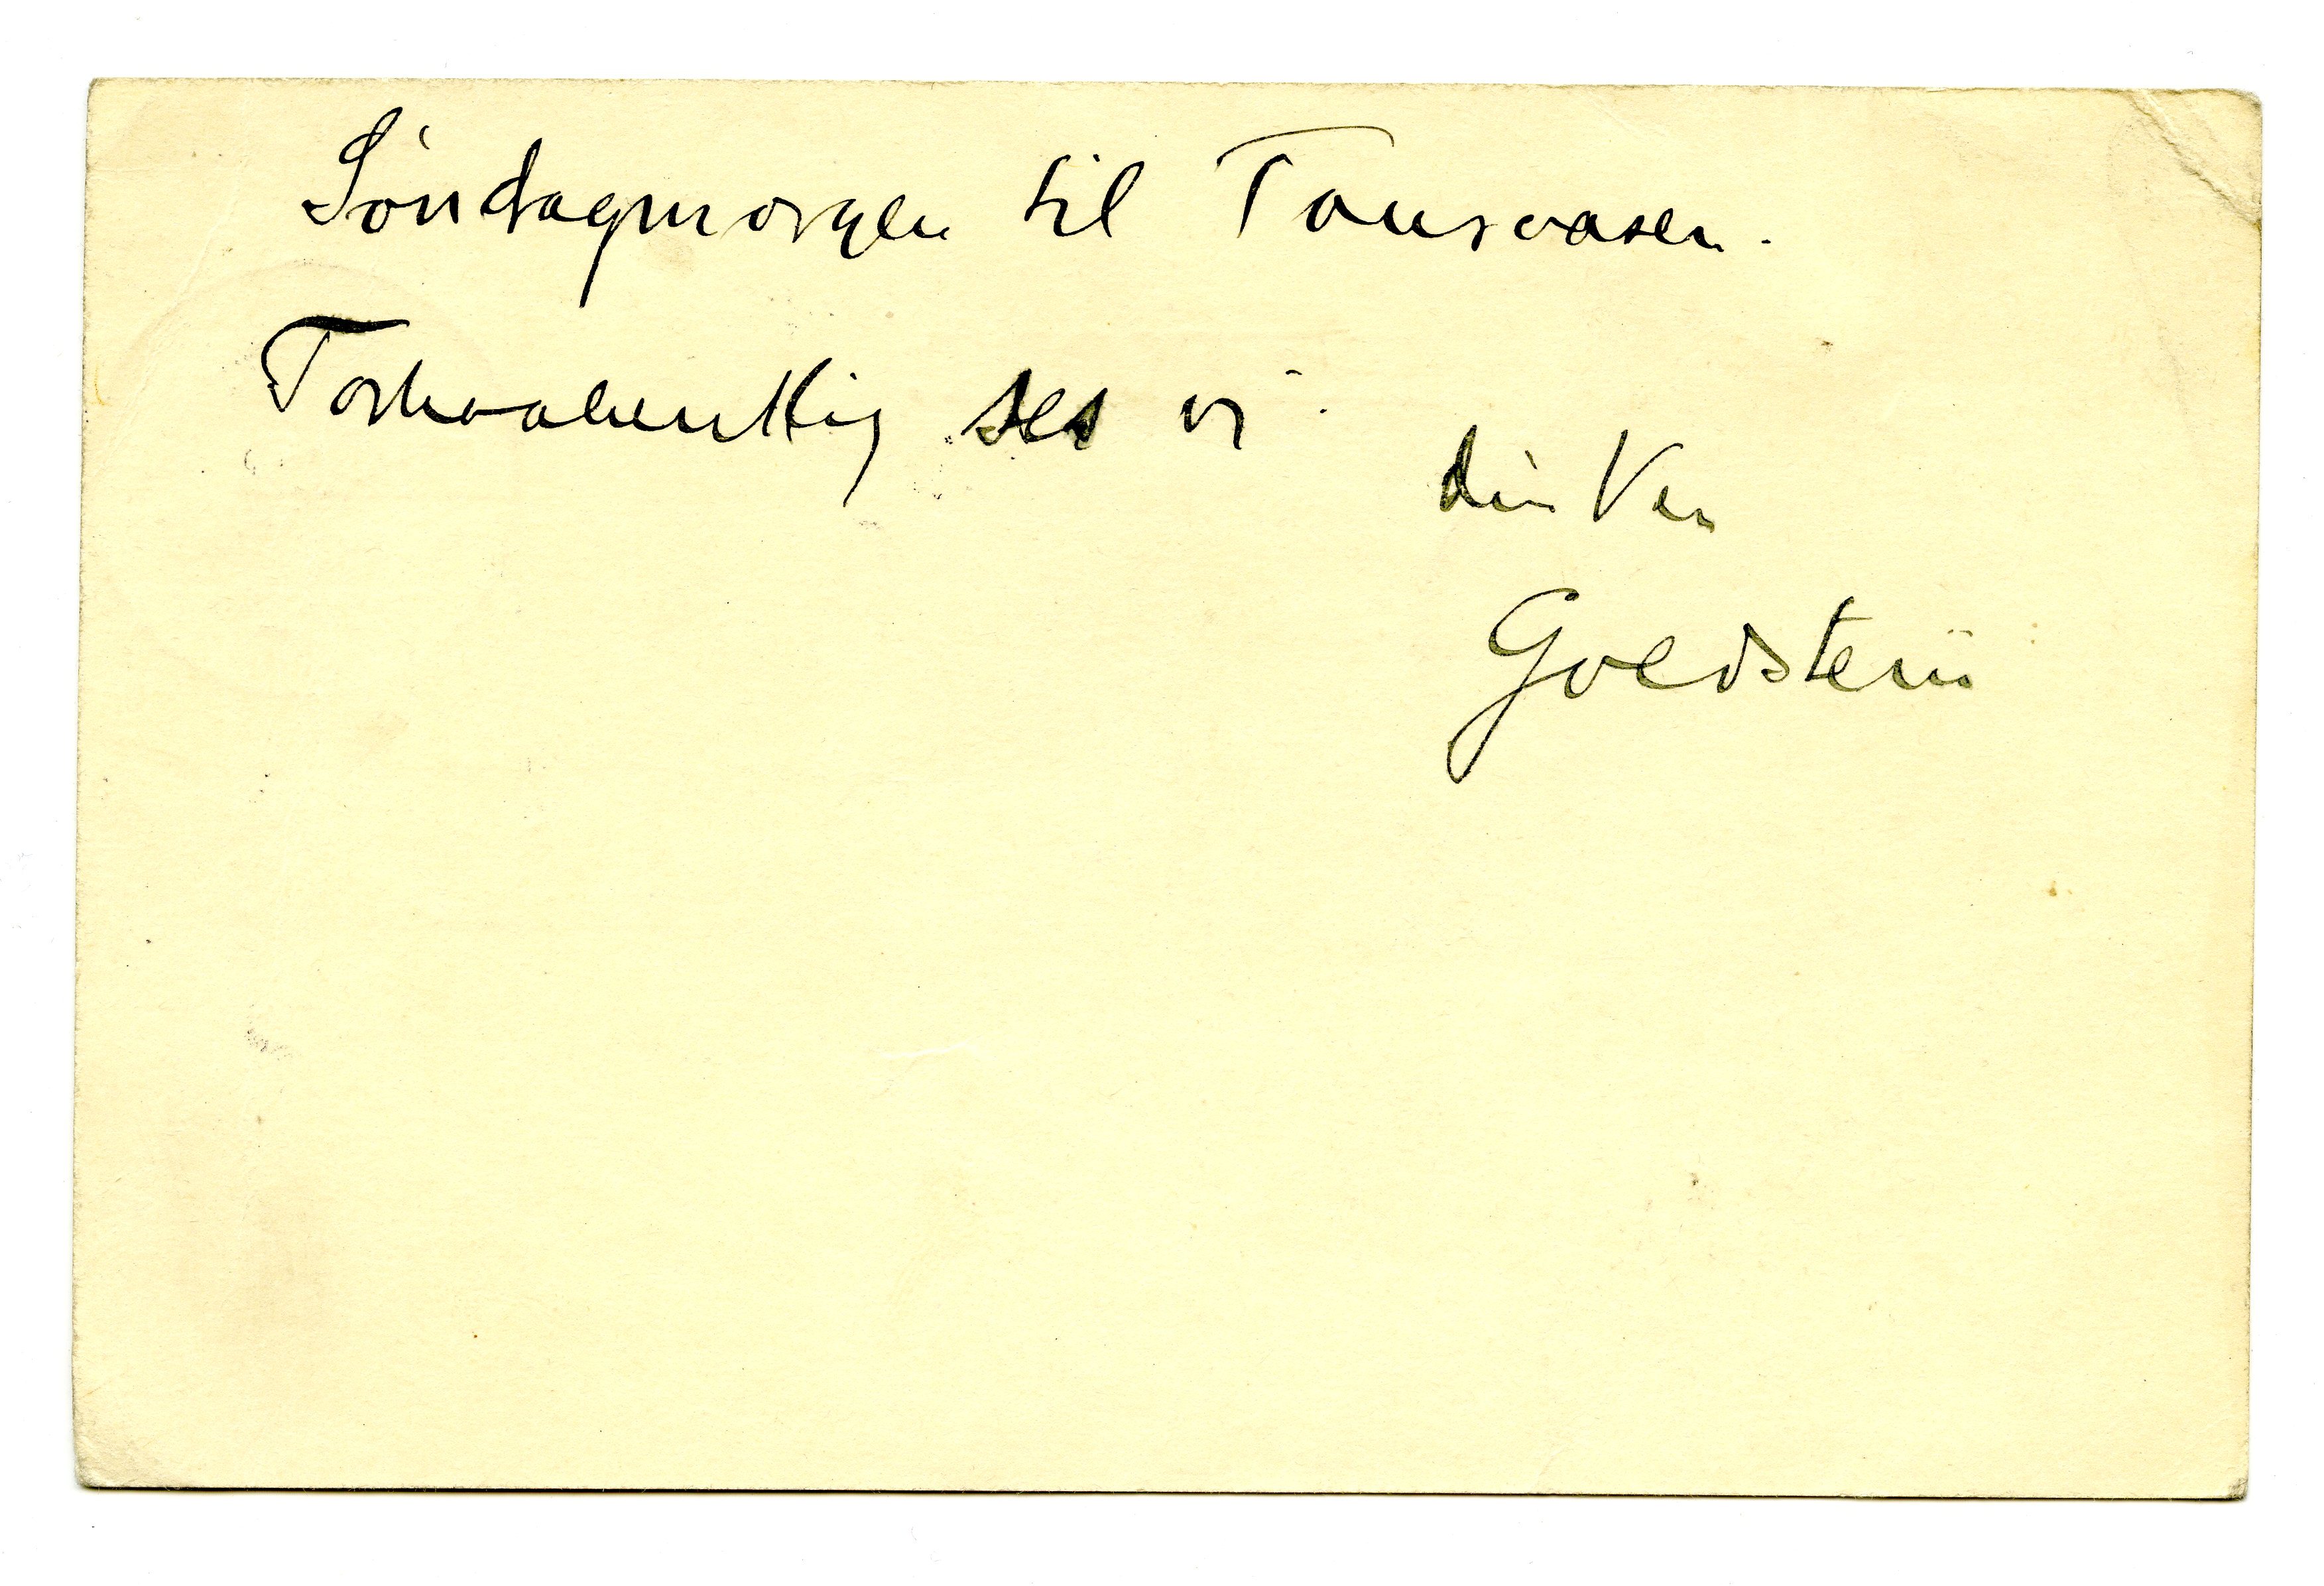 Søndagmorgen til Tonsaasen.
Forhaabentlig ses vi.
din Ven
Goldstein